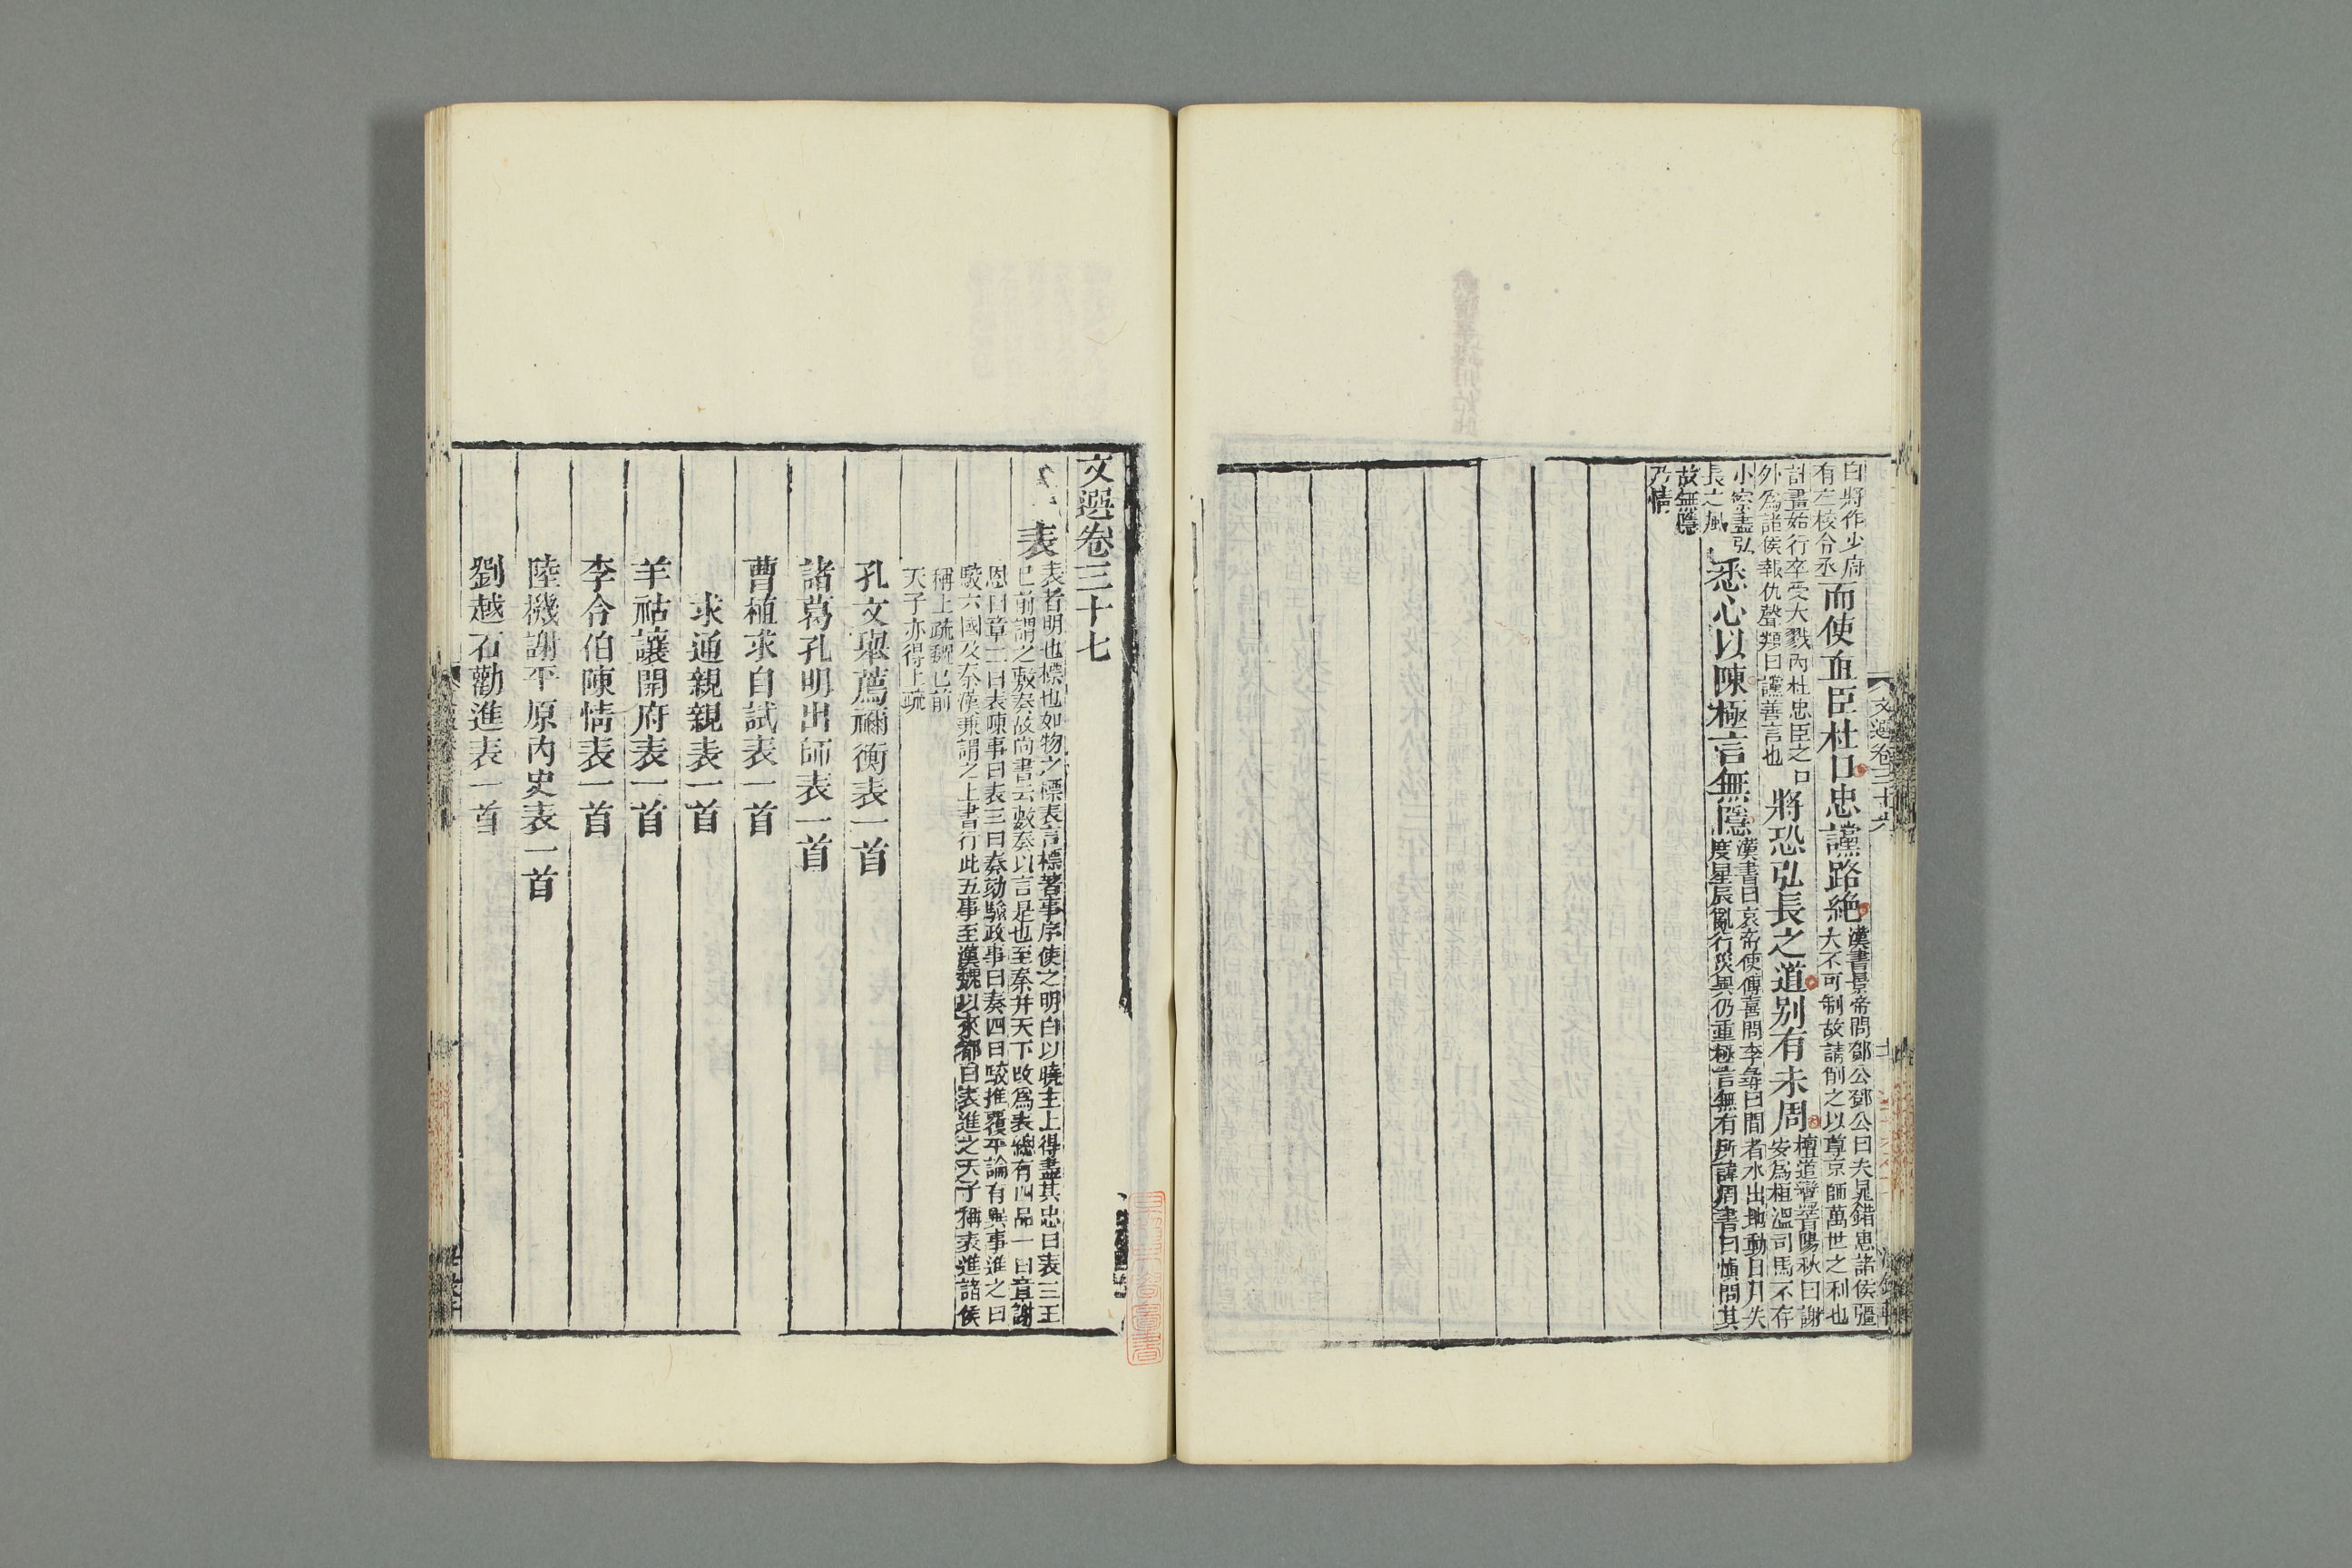 白將作少府
有左校令丞
而使直臣杜口忠讜路絶
漢書景帝問鄧公鄧公曰夫晁錯患諸侯彊
大不可制故請削之以尊京師萬世之利也
計畫始行卒受大戮內杜忠臣之口
外為諸侯報仇聲類曰讜善言也
將恐弘長之道別有未周
檀道鸞晉陽秋曰謝
安為桓溫司馬不存
小察盡弘
長之風
悉心以陳極言無隱
漢書曰哀帝使傅喜問李尋曰間者水出地動日月失
度星辰亂行災異仍重極言無有所諱周書曰慎問其
故無隱
乃情
文選卷三十六
文選卷三十七
表
表者明也標也如物之標表言標著事序使之明白以曉主上得盡其忠曰表三王
已前謂之敷奏故尚書云敷奏以言是也至秦并天下改為表總有四品一曰章謝
恩曰章二曰表陳事曰表三曰奏劾驗政事曰奏四曰駮推覆平論有異事進之曰
駮六國及秦漢兼謂之上書行此五事至漢魏以來都曰表進之天子稱表進諸侯
稱上疏魏已前
天子亦得上疏
孔文舉薦禰衡表一首
諸葛孔明出師表一首
曹植求自試表一首
求通親親表一首
羊祜讓開府表一首
李令伯陳情表一首
陸機謝平原內史表一首
劉越石勸進表一首